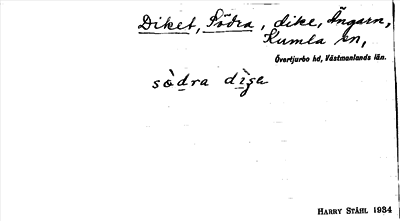 Diket, Södra, dike, Ängarn,
Kumla sn,
Övertjurbo hd, Västmanlands län.
sὸdra dìgε
HARRY STÅHL 1934